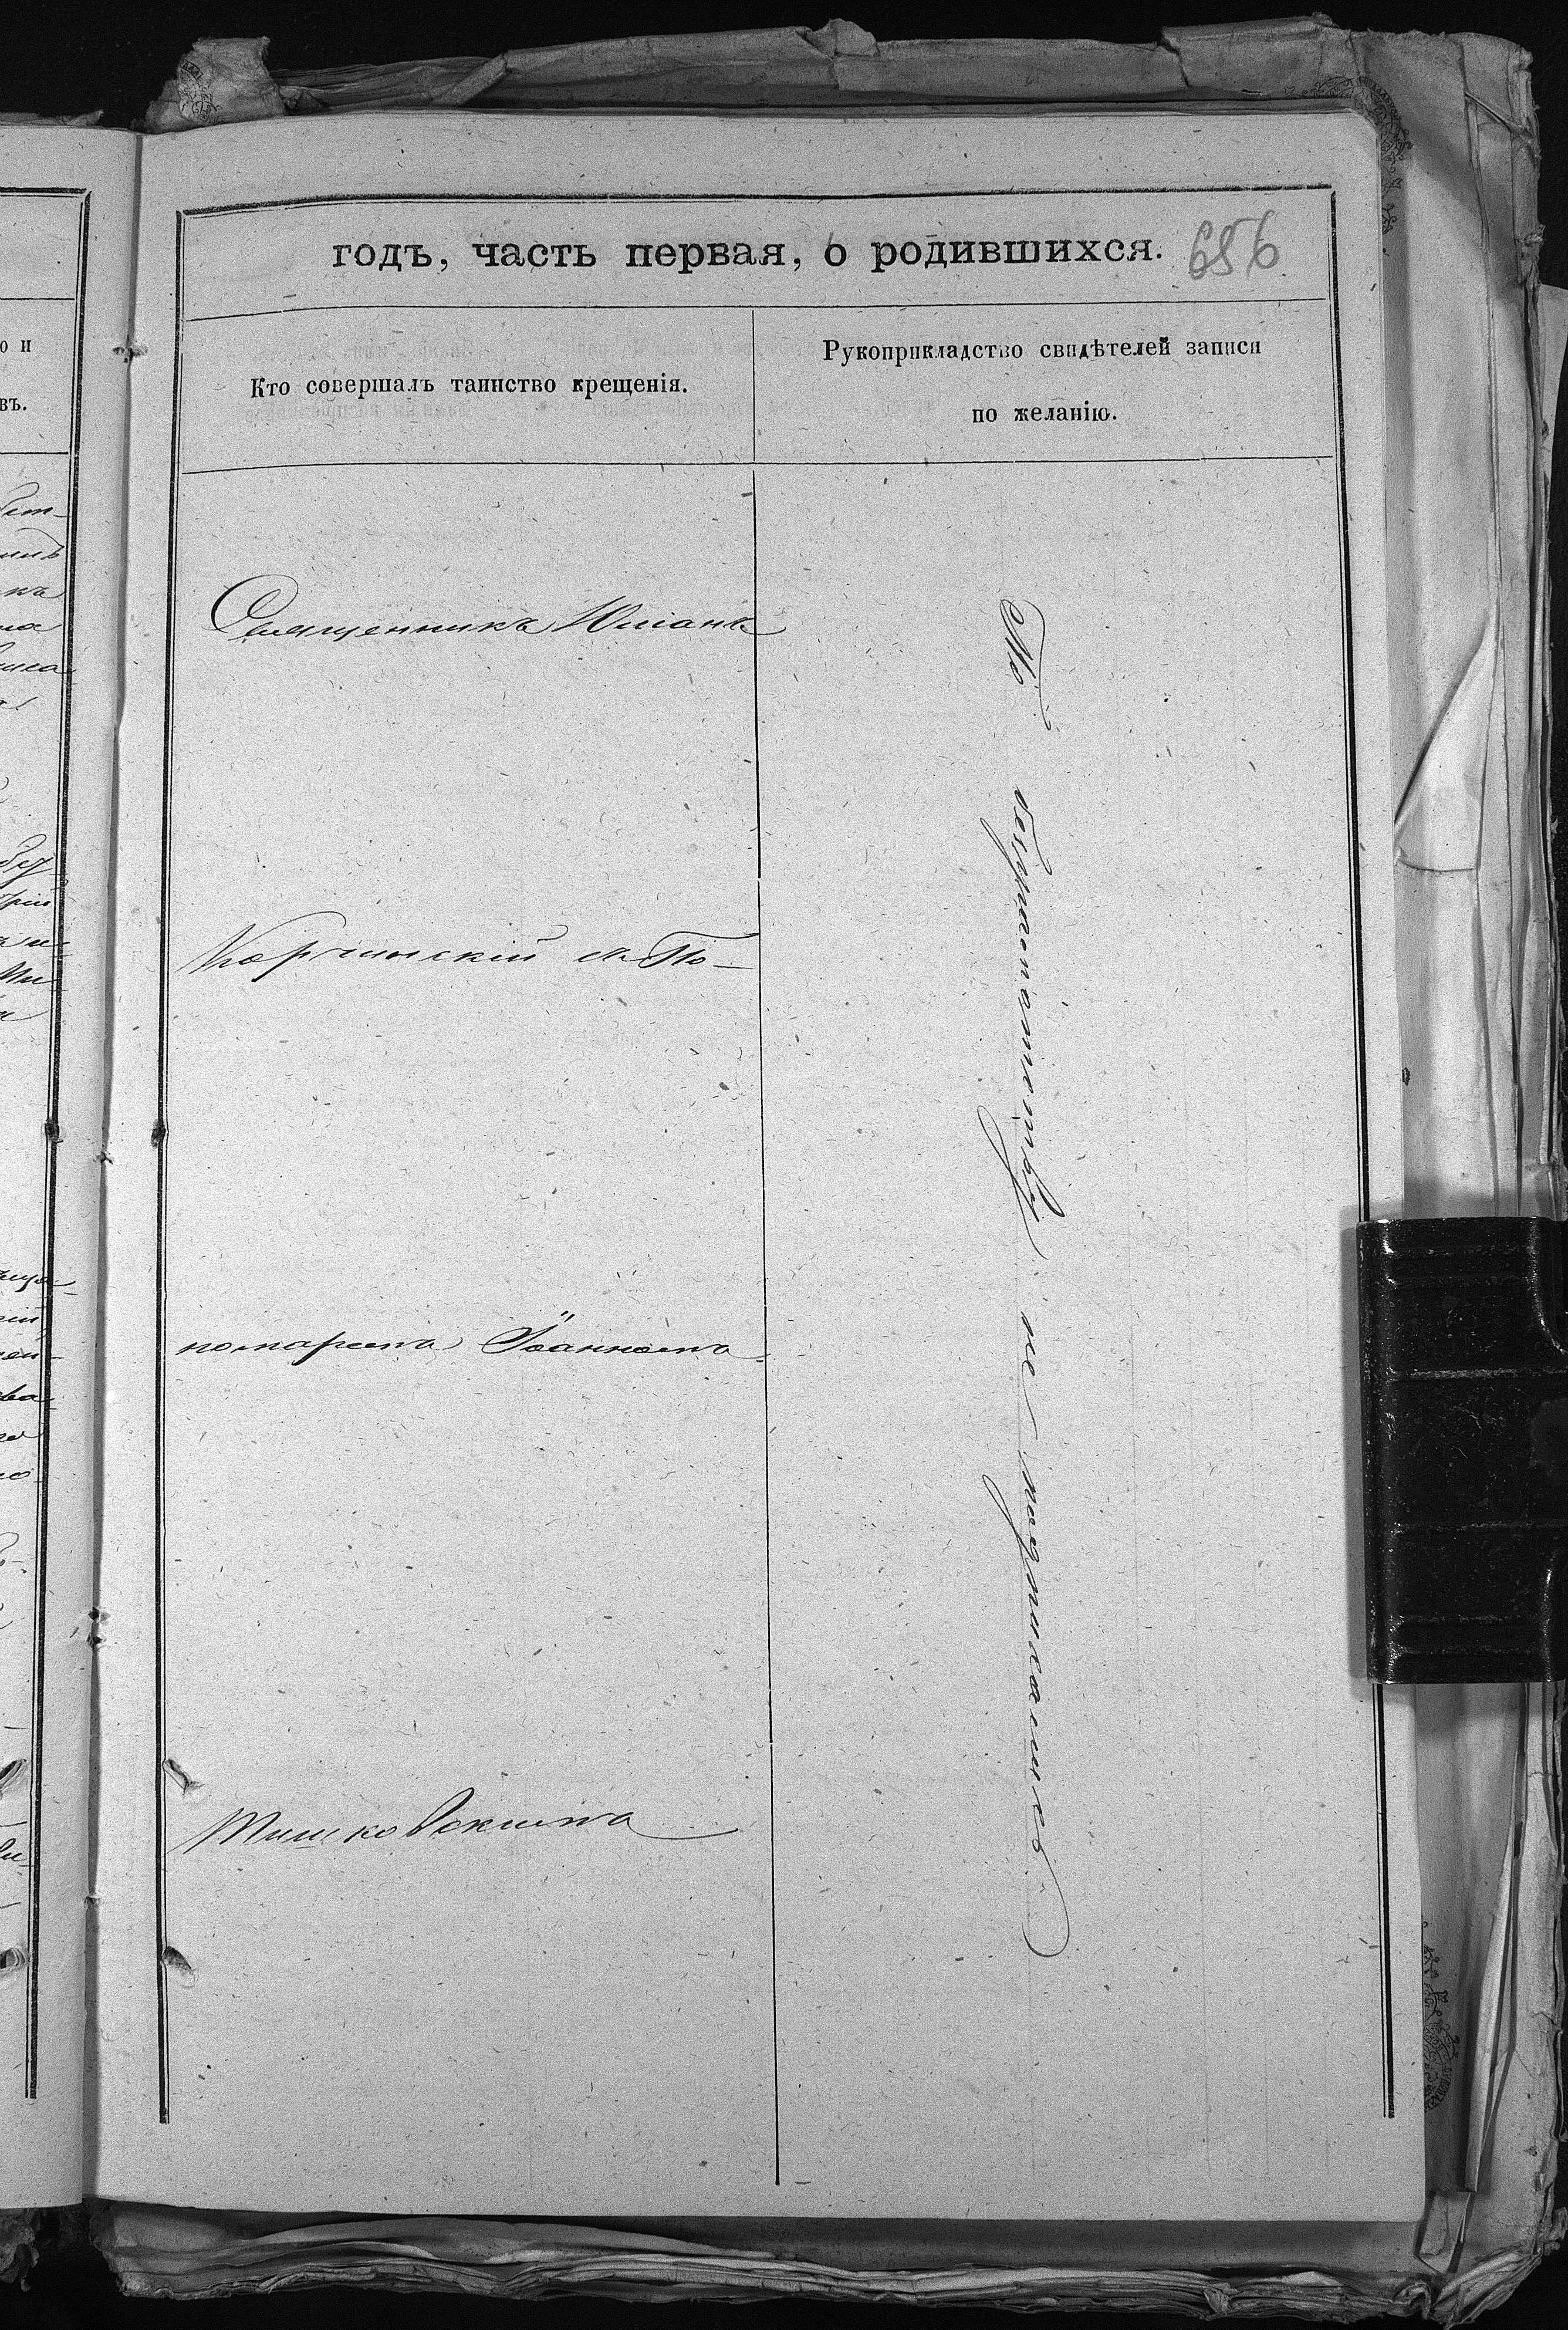 годъ, часть первая, о родившихся. 656
Кто совершалъ таинство крещенія.
Рукоприкладство свидѣтелей записи
по желанію.
Священникъ Юліанъ
Корчинскій съ По-
номаремъ Іоанномъ
Тишковскимъ
По безграмотству не подписались